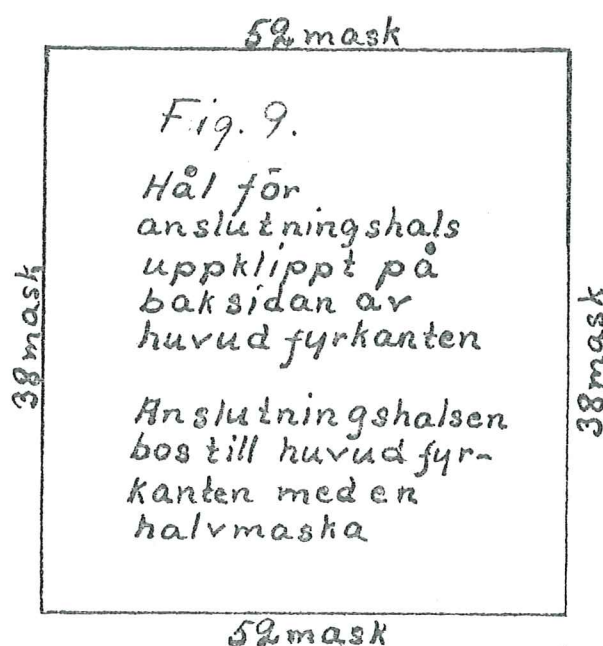 52 mask
Fig. 9.
Hål för
anslutningshals
uppklippt på
baksidan av
huvudfyrkanten
38 mask
38 mask
Anslutningshalsen
bos till huvudfyr-
kanten med en
halvmaska
52 mask